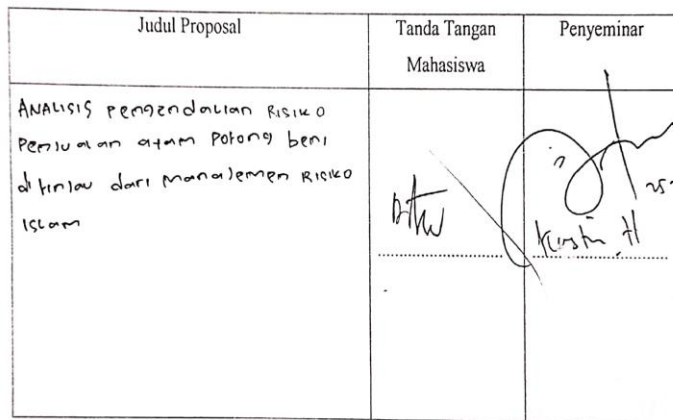 Judul Proposal
Tanda Tangan
Mahasiswa
Penyeminar
ANALISIS Pengendalian RISIKO
Penjualan ayam Potong beni
ditinjau dari Manajemen RISIKO
ISLam